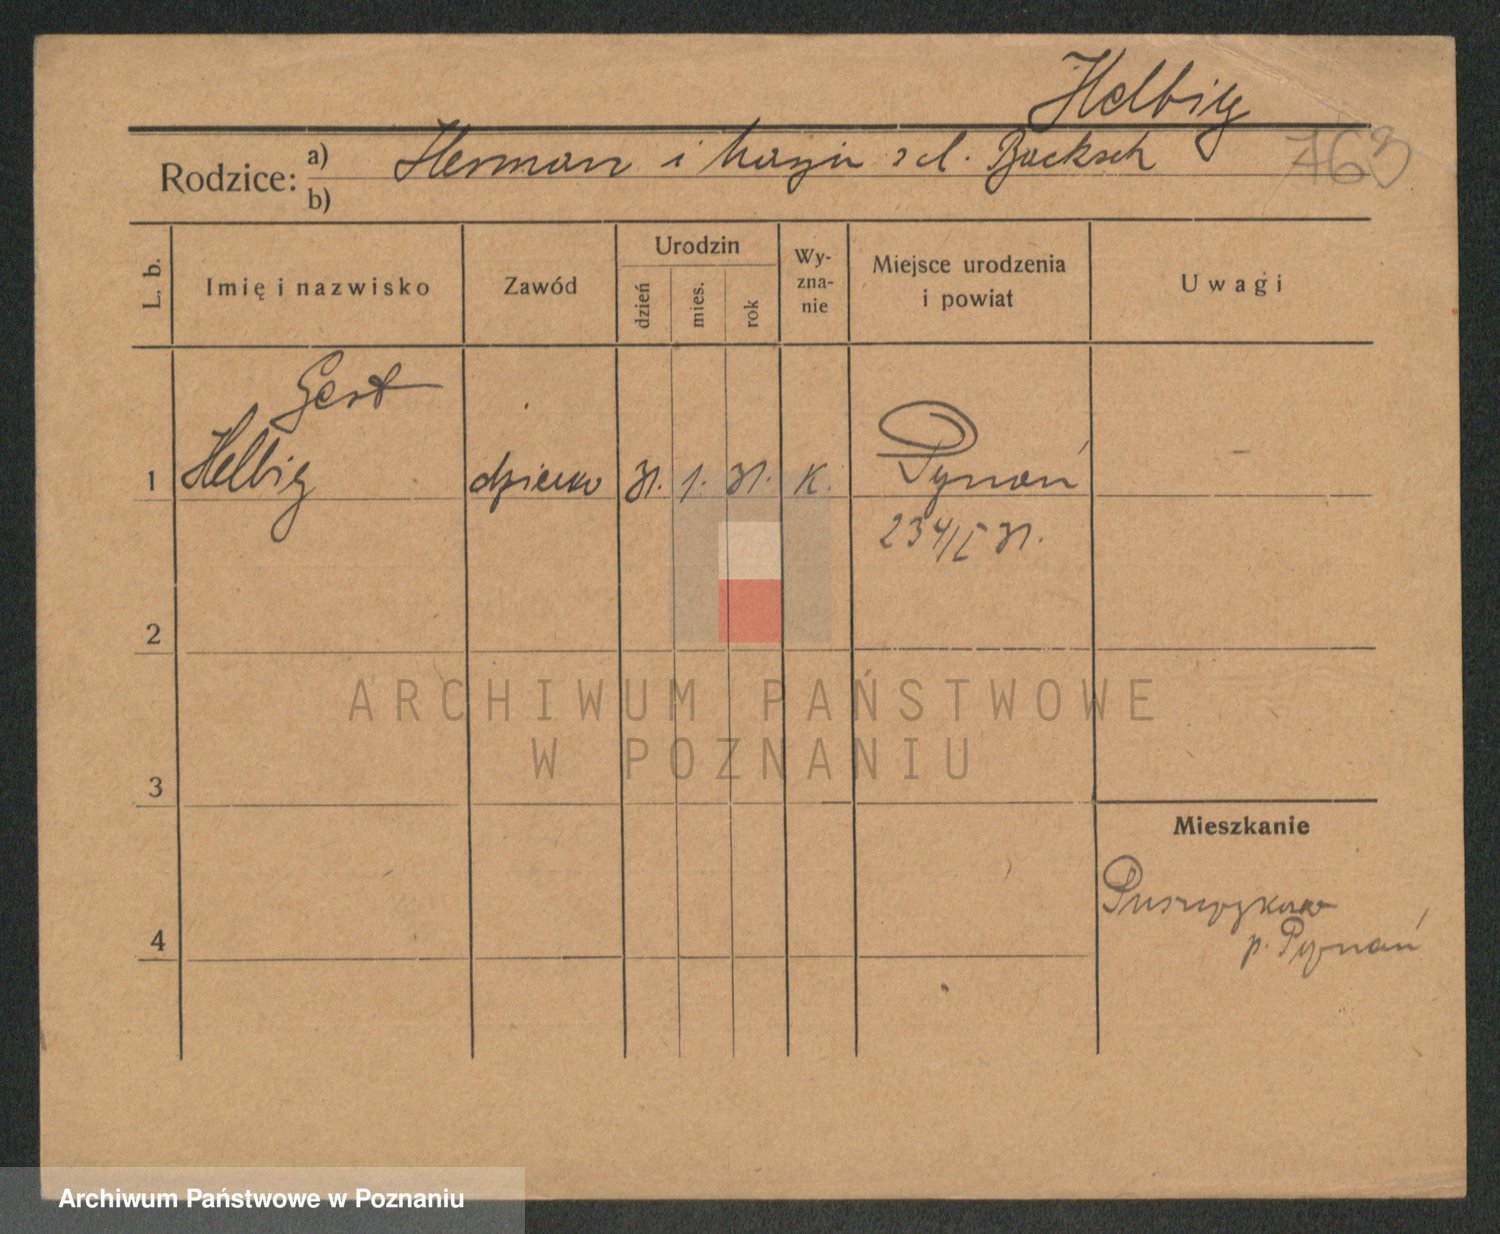 Helbig
763
Rodzice: a) Herman i Marja z d. Backsch
b)
L. b.
Imię i nazwisko
Zawód
Urodzin
dzień
mies.
rok
Wy-
zna-
nie
Miejsce urodzenia
i powiat
Uwagi
Gert
1 Helbig dziecko 31. 1. 31. K. Poznań
234/I 31.
2
3
4
Mieszkanie
Puszczykowo
p. Poznań
ARCHIWUM PAŃSTWOWE
W POZNANIU
Archiwum Państwowe w Poznaniu